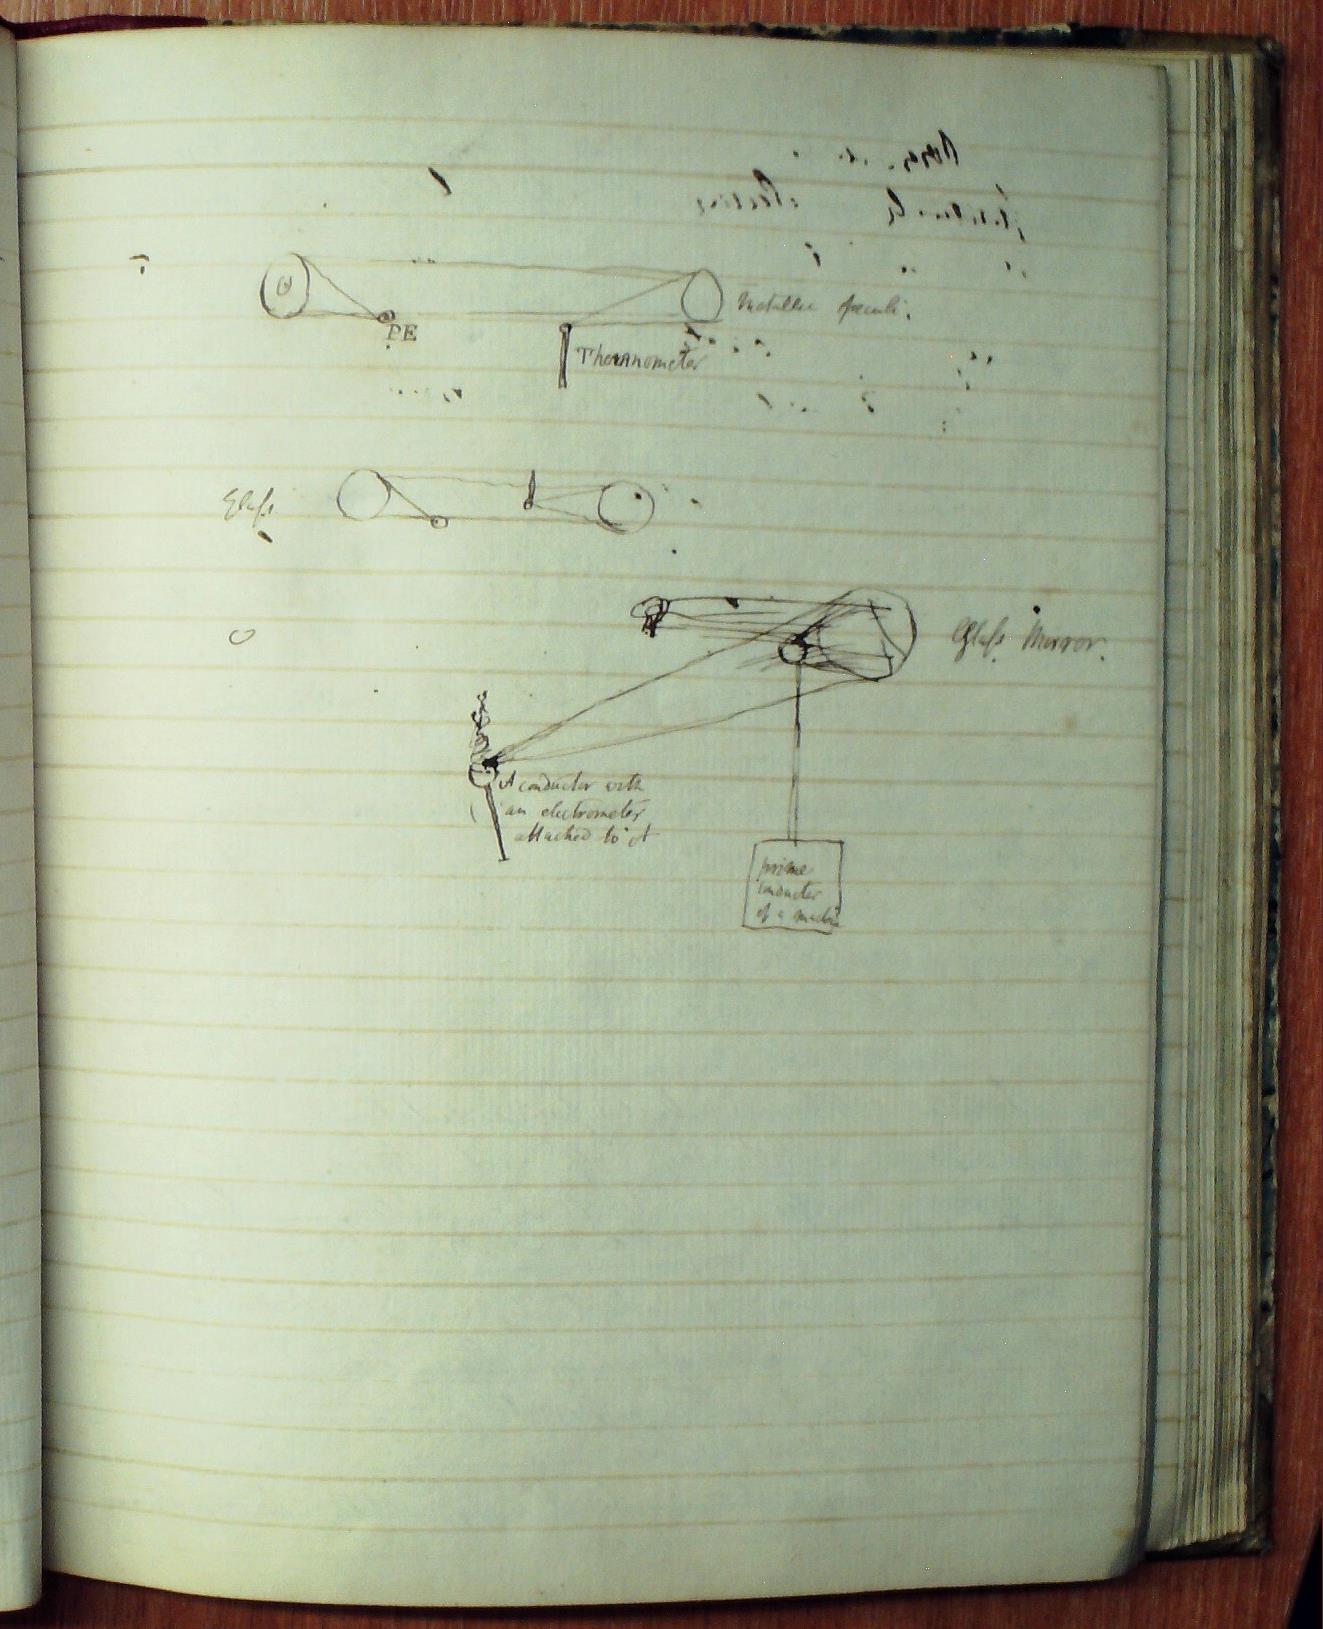 Metallic Speculi.
PE
Thermometer
Glass
Glass Mirror.
A conductor with
an electrometer
attached to it
prime
conductor
of a machine